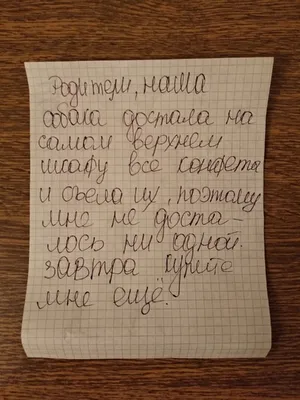 Родители, наша
собака достала на
самом верхнем
шкафу все конфеты
и съела их, поэтому
мне не доста-
лось ни одной.
завтра купите
мне ещё.